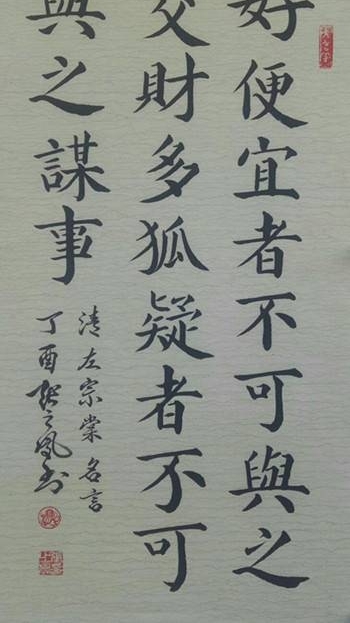 好便宜者不可與之
交財多狐疑者不可
與之謀事
清左宗棠名言
丁酉張之風書